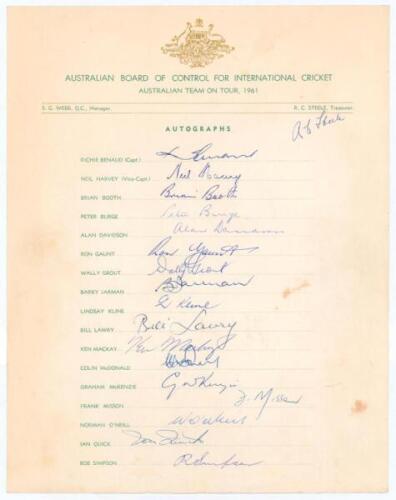 AUSTRALIAN BOARD OF CONTROL FOR INTERNATIONAL CRICKET
AUSTRALIAN TEAM ON TOUR, 1961
S. G. WEBB, Q.C., Manager. R. C. STEELE, Treasurer.
AUTOGRAPHS
RICHIE BENAUD (Capt.)
NEIL HARVEY (Vice-Capt.) Neil Harvey
BRIAN BOOTH Brian Booth
PETER BURGE Peter Burge
ALAN DAVIDSON Alan Davidson
RON GAUNT Ron Gaunt
WALLY GROUT Wally Grout
BARRY JARMAN B Jarman
LINDSAY KLINE L Kline
BILL LAWRY Bill Lawry
KEN MACKAY Ken Mackay
COLIN McDONALD
GRAHAM McKENZIE G McKenzie
FRANK MISSON F. Misson
NORMAN O'NEILL
IAN QUICK Ian Quick
BOB SIMPSON R Simpson